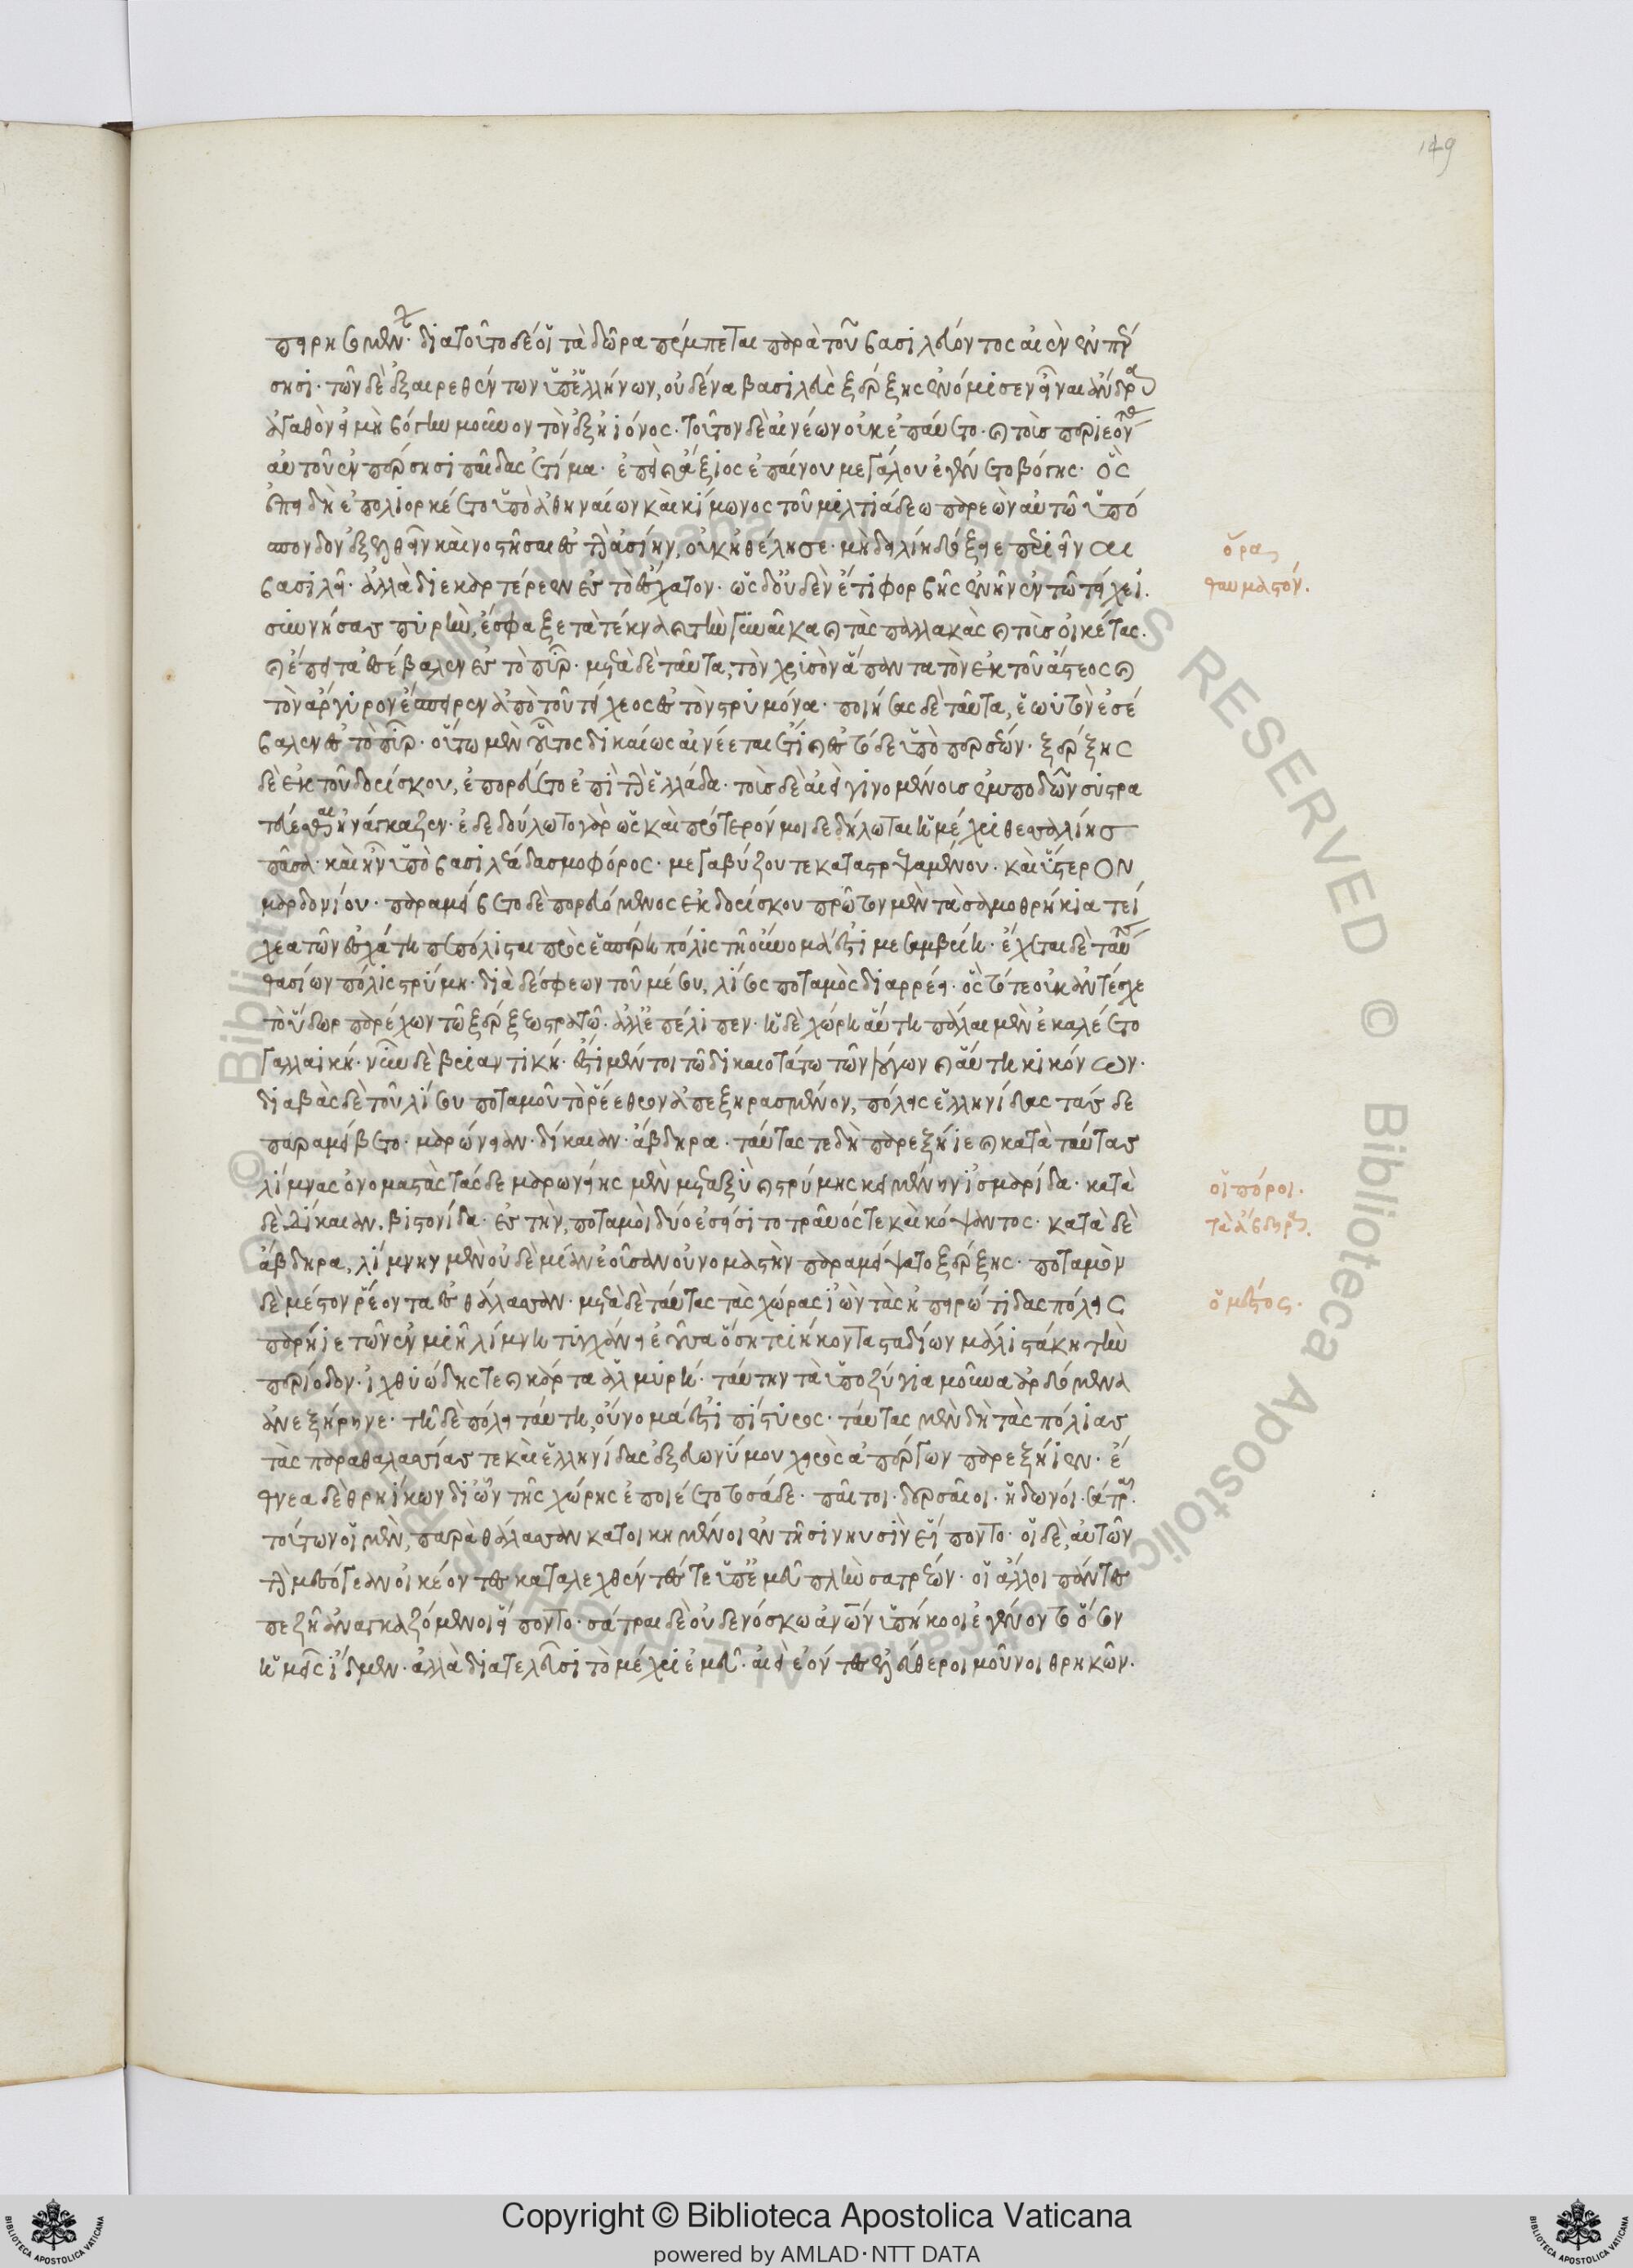 149
πειρησαμένων. διὰ τοῦτο δέ οἱ τὰ δῶρα πέμπεται παρὰ τοῦ βασιλεύοντος αἰεὶ ἐν πέρ
σησι. τῶν δὲ ἐξαιρεθέντων ὑπ' ἑλλήνων, οὐδένα βασιλεὺς ξέρξης ἐνόμισεν εἶναι ἄνδρα
ἀγαθὸν εἰ μὴ βόγην μοῦνον τὸν ἐξ ἠιόνος. τοῦτον δὲ αἰνέων οὐκ ἐπαύετο. καὶ τοὺς περιεόντας
αὐτοῦ ἐν πέρσησι παῖδας ἐτίμα. ἐπεὶ καὶ ἄξιος ἐπαίνου μεγάλου ἐγένετο βόγης. ὃς
ἐπειδὴ ἐπολιορκέετο ὑπὸ ἀθηναίων καὶ κίμωνος τοῦ μιλτιάδεω παρεὸν αὐτῷ ὑπό
σπονδον ἐξελθεῖν καὶ νοστῆσαι ἐς τὴν ἀσίην, οὐκ ἠθέλησε. μὴ δειλίῃ δόξειε περιεῖναι
βασιλεῖ. ἀλλὰ διεκαρτέρεεν ἐς τὸ ἔσχατον. ὡς δ' οὐδὲν ἔτι φορβῆς ἐνῆν ἐν τῷ τείχει.
συννήσας πυρὴν, ἔσφαξε τὰ τέκνα καὶ τὴν γυναῖκα καὶ τὰς παλλακὰς καὶ τοὺς οἰκέτας.
καὶ ἔπειτα ἐσέβαλεν ἐς τὸ πῦρ. μετὰ δὲ ταῦτα, τὸν χρυσὸν ἅπαντα τὸν ἐκ τοῦ ἄστεος καὶ
τὸν ἄργυρον ἔσπειρεν ἀπὸ τοῦ τείχεος ἐς τὸν στρυμόνα. ποιήσας δὲ ταῦτα, ἑωυτὸν ἐσέ
βαλεν ἐς τὸ πῦρ. οὕτω μὲν οὗτος δικαίως αἰνέεται ἔτι καὶ ἐς τόδε ὑπὸ περσέων. ξέρξης
δὲ ἐκ τοῦ δορίσκου, ἐπορεύετο ἐπὶ τὴν ἑλλάδα. τοὺς δὲ αἰεὶ γινομένους ἐμποδὼν συστρα
τεύεσθαι ἠνάγκαζεν. ἐδεδούλωτο γὰρ ὡς καὶ πρότερόν μοι δεδήλωται ἡ μέχρι θεσσαλίης
πᾶσα. καὶ ἦν ὑπὸ βασιλέα δασμοφόρος. μεγαβύζου τε καταστρεψαμένου. καὶ ὕστερον
μαρδονίου. παραμείβετο δὲ πορευόμενος ἐκ δορίσκου πρῶτον μὲν τὰ σαμοθρηίκια τεί
χεα τῶν ἐσχάτη πεπόλισται πρὸς ἑσπέρη πόλις τῇ οὔνομά ἐστι μεσαμβρίη. ἔχεται δὲ ταύτης
θασίων πόλις στρύμη. διὰ δέ σφεων τοῦ μέσου, λίσος ποταμὸς διαρρέει. ὃς τότε οὐκ ἀντέσχε
τὸ ὕδωρ παρέχων τῷ ξέρξεω στρατῷ. ἀλλ' ἐπέλιπεν. ἡ δὲ χώρη αὕτη πάλαι μὲν ἐκαλέετο
γαλλαική. νῦν δὲ βριαντική. ἔστι μέντοι τῷ δικαιοτάτῳ τῶν λόγων καὶ αὕτη κικόνων.
διαβὰς δὲ τοῦ λίσου ποταμοῦ τὸ ῥέεθρον ἀπεξηρασμένον, πόλεις ἑλληνίδας τάσδε
παραμείβετο. μαρώνειαν. δίκαιαν. ἄβδηρα. ταύτας τε δὴ παρεξήιε καὶ κατὰ ταύτας
λίμνας ὀνομαστὰς τάσδε μαρωνείης μὲν μεταξὺ καὶ στρύμης κειμένην ἰσμαρίδα. κατὰ
δὲ δίκαιαν, βιστονίδα. ἐς τὴν, ποταμοὶ δύο ἐσιεῖσι τὸ τραῦός τε καὶ κόμψαντος. κατὰ δὲ
ἄβδηρα, λίμνην μὲν οὐδεμίαν ἐοῦσαν οὐνομαστὴν παραμείψατο ξέρξης. ποταμὸν
δὲ μέστον ῥέοντα ἐς θάλασσαν. μετὰ δὲ ταύτας τὰς χώρας ἰὼν τὰς ἠπειρώτιδας πόλεις
παρήιε τῶν ἐν μιῇ λίμνη τυγχάνει ἐοῦσα ὅση τριήκοντα σταδίων μάλιστά κη τὴν
περίοδον. ἰχθυώδης τε καὶ κάρτα ἁλμυρή. ταύτην τὰ ὑποζύγια μοῦνα ἀρδευόμενα
ἀνεξήρηνε. τῇ δὲ πόλει ταύτῃ, οὔνομά ἐστι πίστυρος. ταύτας μὲν δὴ τὰς πόλιας
τὰς παραθαλασσίας τε καὶ ἑλληνίδας ἐξ εὐωνύμου χειρὸς ἀπέργων παρεξήιεν. ἔ
θνεα δὲ θρηίκων δι' ὧν τῆς χώρης ἐποιέετο τοσάδε. παῖτοι. δερσαῖοι. ἠδωνοί. σάτραι.
τούτων οἱ μὲν, παρὰ θάλασσαν κατοικημένοι ἐν τῇσι νηυσὶν εἵποντο. οἱ δὲ, αὐτῶν
τὴν μεσόγεαν οἰκέοντες καταλεχθέντες τε ὑπ' ἐμεῦ πλὴν σατρέων. οἱ ἄλλοι πάντες
πεζῇ ἀναγκαζόμενοι εἵποντο. σάτραι δὲ οὐδενός κω ἀνθρώπων ὑπήκοοι ἐγένοντο ὅσον
ἡμεῖς ἴδμεν. ἀλλὰ διατελεῦσι τὸ μέχρι ἐμεῦ. αἰεὶ ἐόντες ἐλεύθεροι μοῦνοι θρηίκων.
ὅρα
θαυμαστόν.
οἱ πόροι.
τὰ ἄβδηρα.
ὁ μέστος.
Copyright © Biblioteca Apostolica Vaticana
powered by AMLAD·NTT DATA